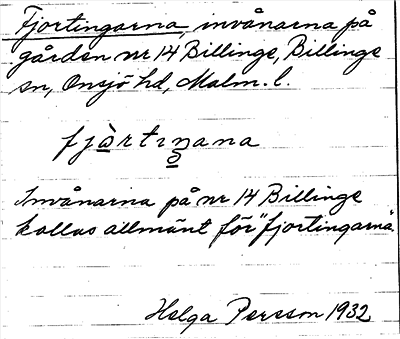 Fjortingarna, invånarna på
gården nr 14 Billinge, Billinge
sn, Onsjö hd, Malm. l.
fjòrtiŋana
Invånarna på nr 14 Billinge
kallas allmänt för "fjortingarna".
Helga Persson 1932